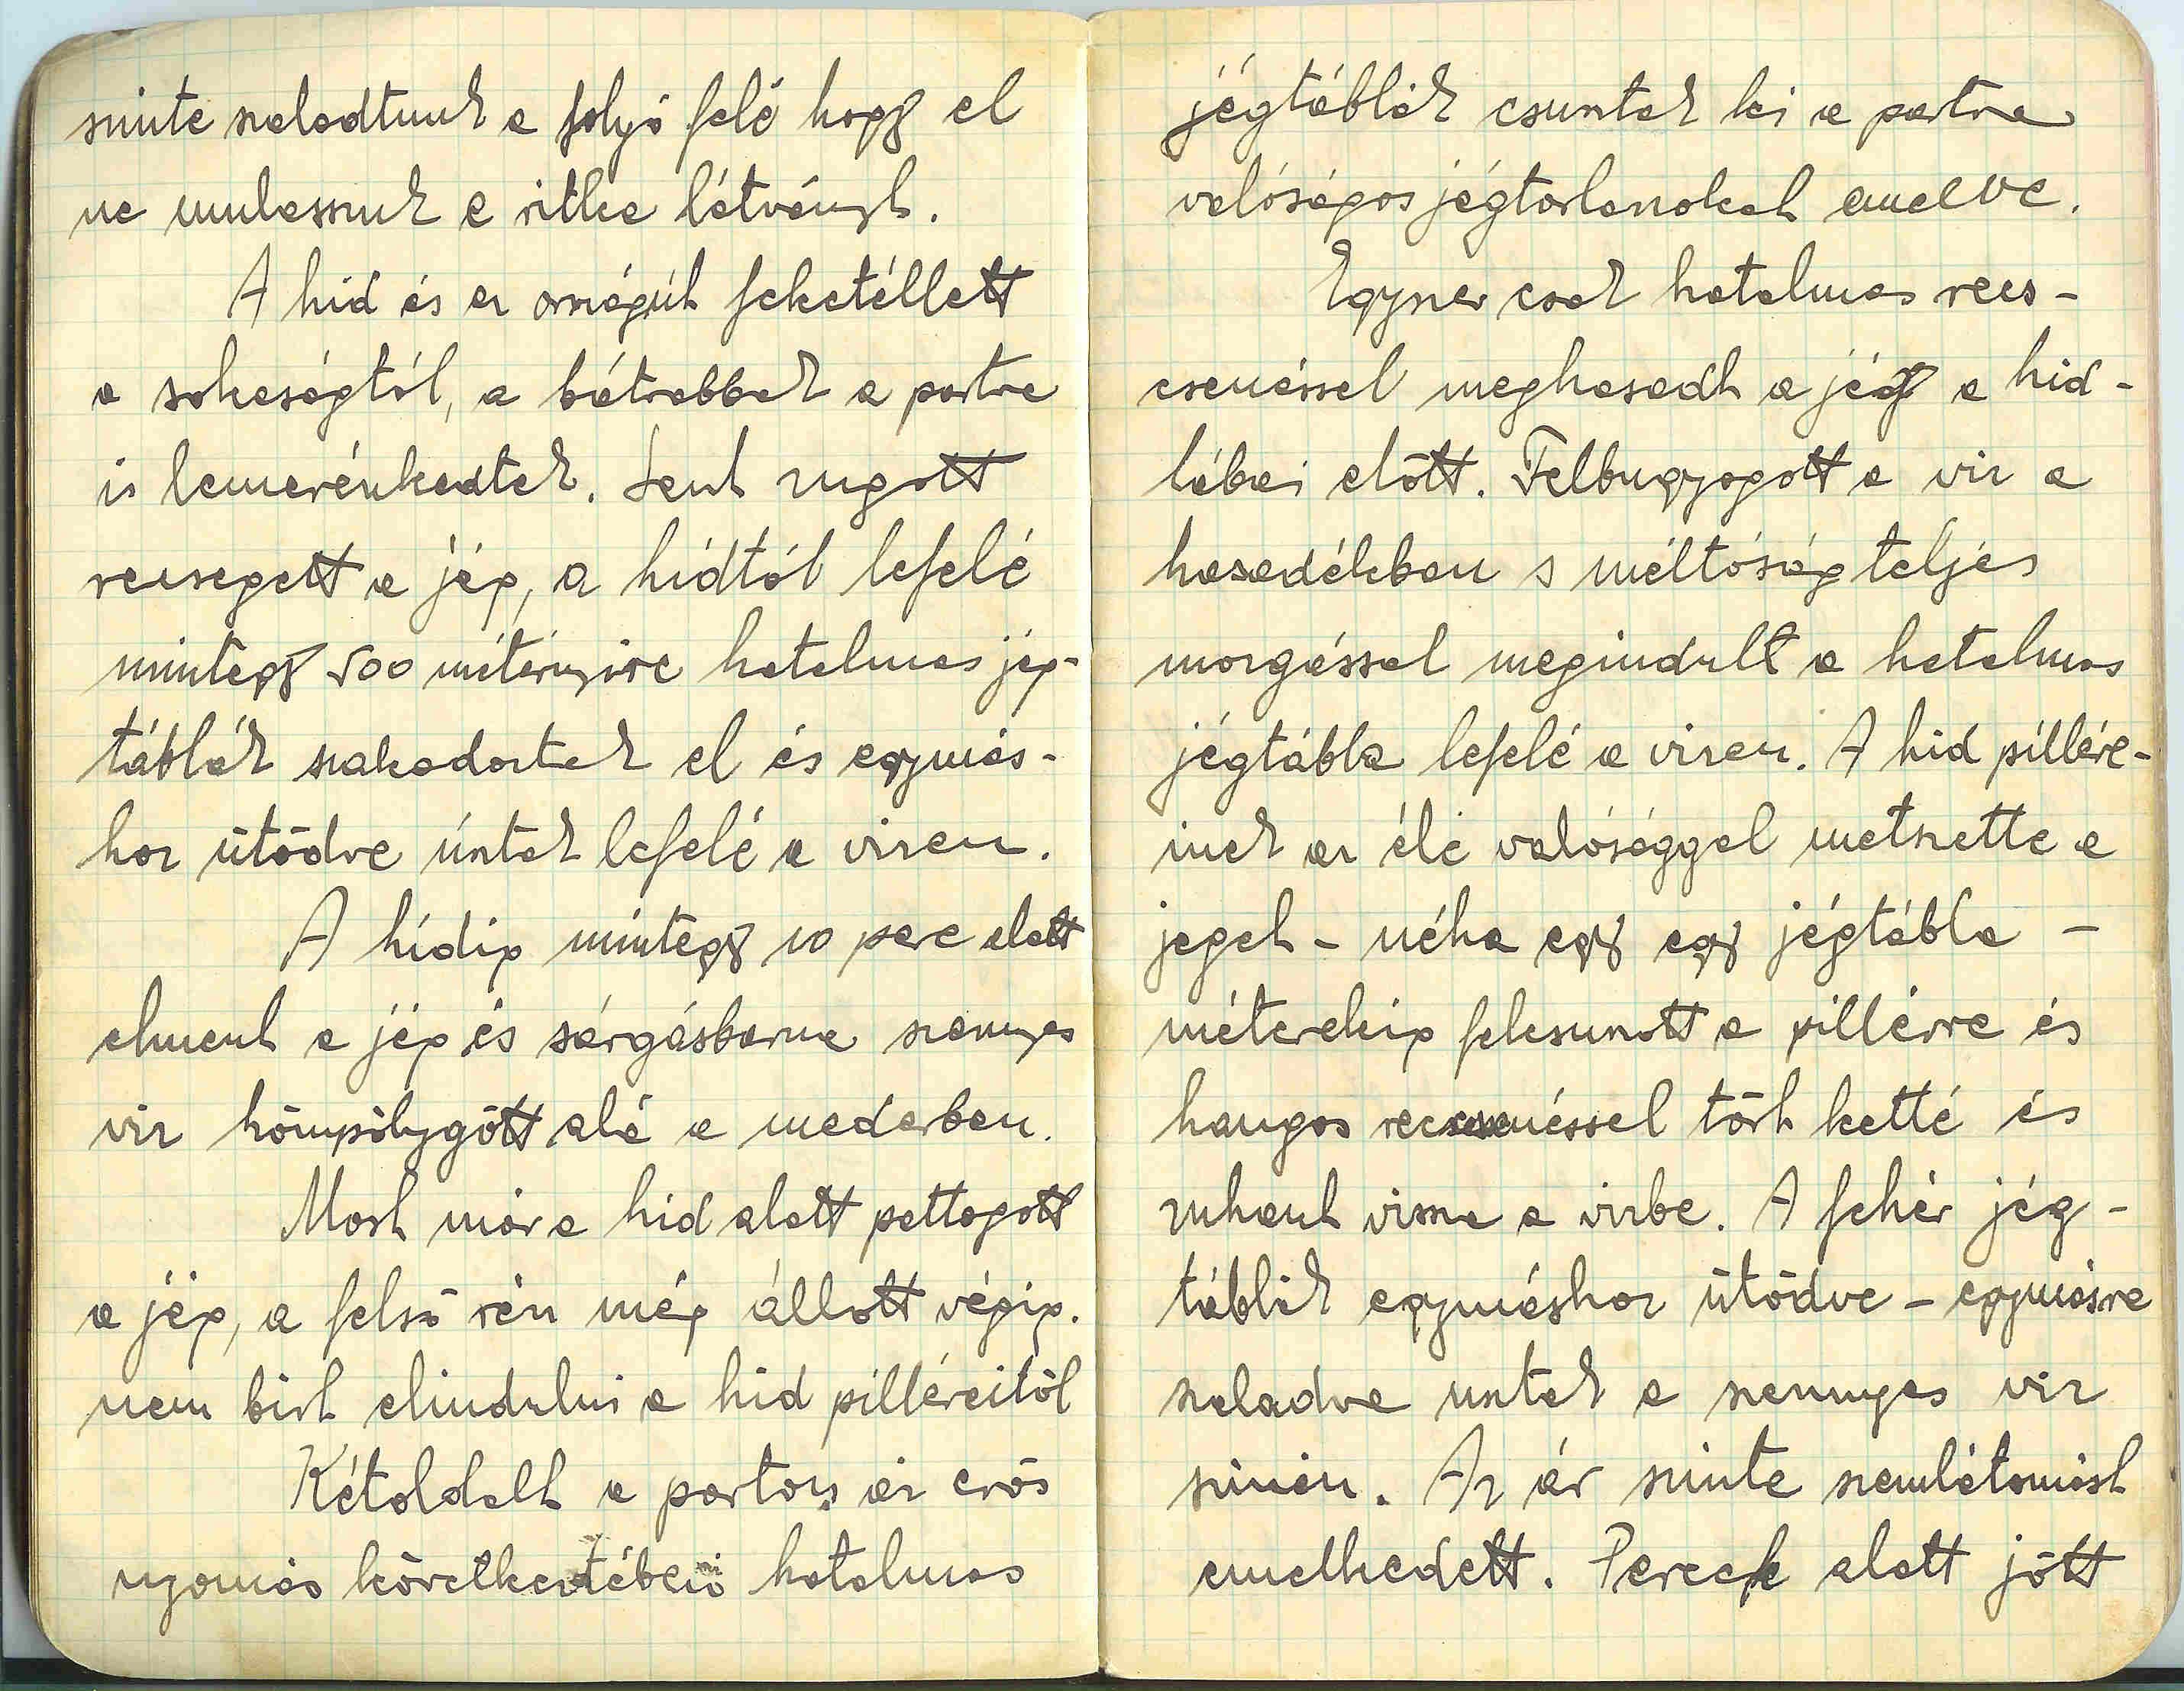 szinte szaladtunk a folyó felé hogy el
ne mulasszuk e ritka látványt.
A híd és az országút feketéllett
a sokaságtól, a bátrabbak a partra
is lemerészkedtek. Lent zugott
recsegett a jég, a hídtól lefelé
mintegy 500 méternyire hatalmas jég-
táblák szakadoztak el és egymás-
hoz ütődve úsztak lefelé a vizen.
A hídig mintegy 10 perc alatt
elment a jég és sárgásbarna szennyes
viz hömpölygött alá a mederben.
Most már a hid alatt pattogott
a jég, a felső rész még állott végig.
nem birt elindulni a hid pilléreitől
Kétoldalt a parton az erős
nyomás következtében hatalmas
jégtáblák csusztak ki a partra
valóságos jégtorlaszokat emelve.
Egyszer csak hatalmas recs-
csenéssel meghasadt a jég a hid-
lábai előtt. Felbugyogott a viz a
hasadékban s méltóság teljes
morgással megindult a hatalmas
jégtábla lefelé a vizen. A hid pillére-
inek az éle valósággal metszette a
jeget - néha egy egy jégtábla -
méterekig felcsuszott a pillérre és
hangos reccsenéssel tört ketté és
zuhant vissza a vizbe. A fehér jég-
táblák egymáshoz ütődve - egymásra
szaladva usztak a szennyes viz
szinén. Az ár szinte szemlátomást
emelkedett. Percek alatt jött